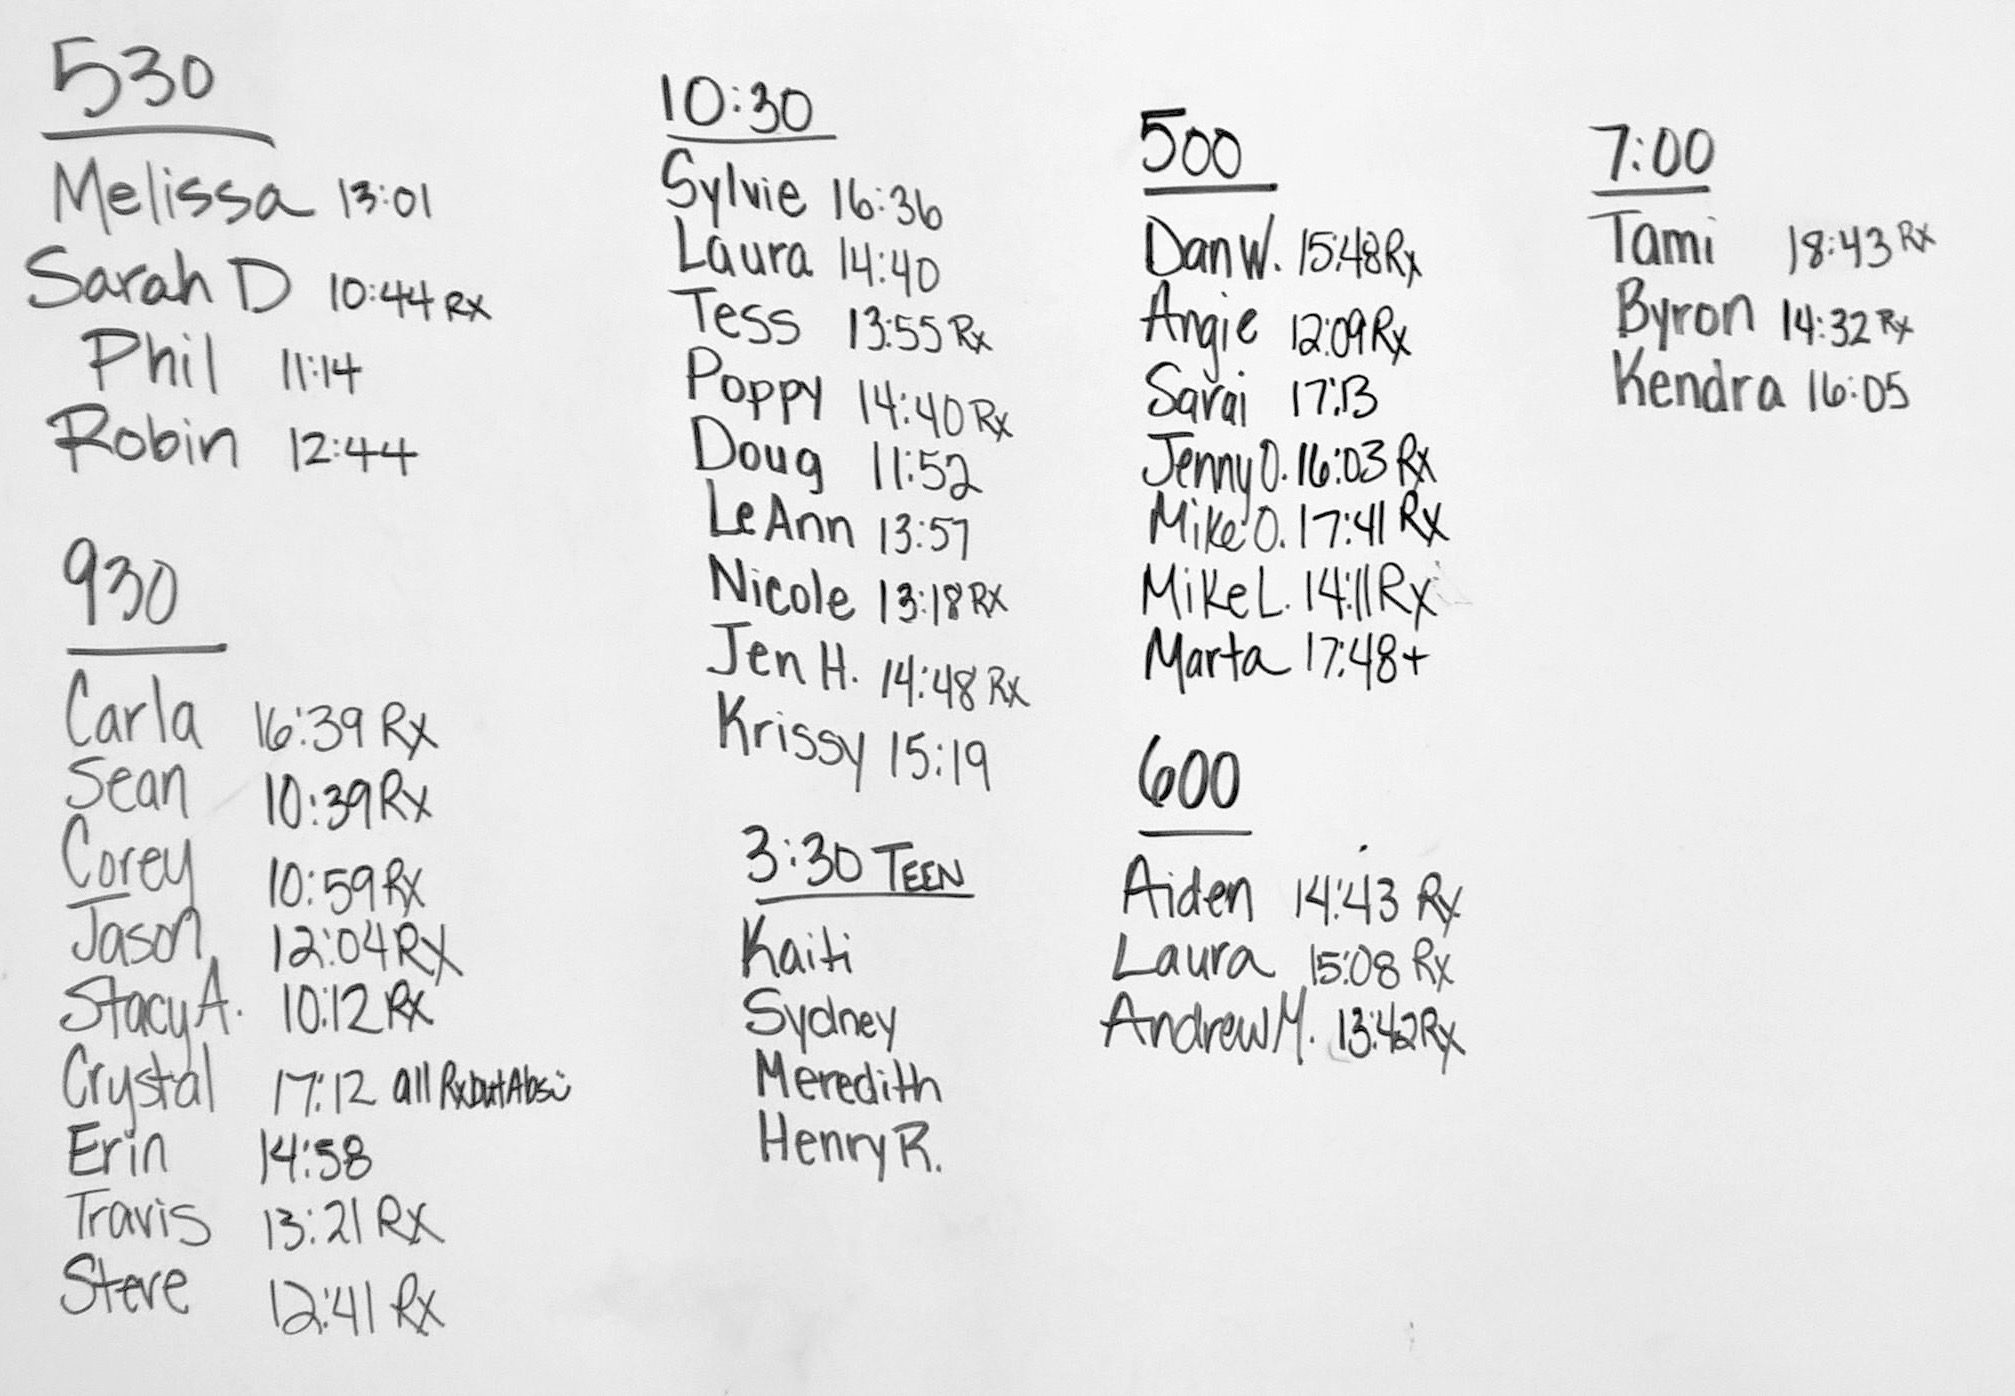 530
Melissa 13:01
Sarah D 10:44 Rx
Phil 11:14
Robin 12:44
930
Carla 16:39 Rx
Sean 10:39 Rx
Corey 10:59 Rx
Jason 12:04 RX
Stacy A. 10:12 Rx
Crystal 17:12 all Rx but Abs :)
Erin 14:58
Travis 13:21 RX
Steve 12:41 Rx
10:30
Sylvie 16:36
Laura 14:40
Tess 13:55 Rx
Poppy 14:40 Rx
Doug 11:52
LeAnn 13:57
Nicole 13:18 RX
Jen H. 14:48 Rx
Krissy 15:19
3:30 TEEN
Kaiti
Sydney
Meredith
Henry R.
500
Dan W. 15:48 Rx
Angie 12:09 Rx
Sarai 17:13
Jenny O. 16:03 Rx
Mike O. 17:41 Rx
Mike L. 14:11 Rx
Marta 17:48+
600
Aiden 14:43 Rx
Laura 15:08 Rx
Andrew M. 13:42 Rx
7:00
Tami 18:43 RX
Byron 14:32 Rx
Kendra 16:05